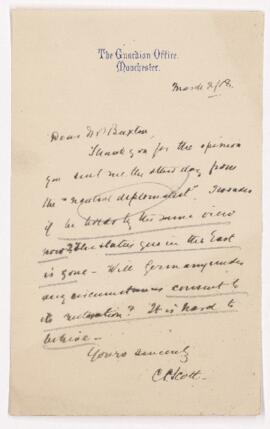 The Guardian Office,
Manchester.
March 2/18.
Dear Mr Buxton,
Thank you for the opinion
you sent me the other day from
the "neutral diplomatist". I wonder
if he holds by the same view
now. The status quo in the East
is gone - Will Germany under
any circumstances consent to
its restoration? It is hard to
believe -
Yours sincerely
C P Scott.